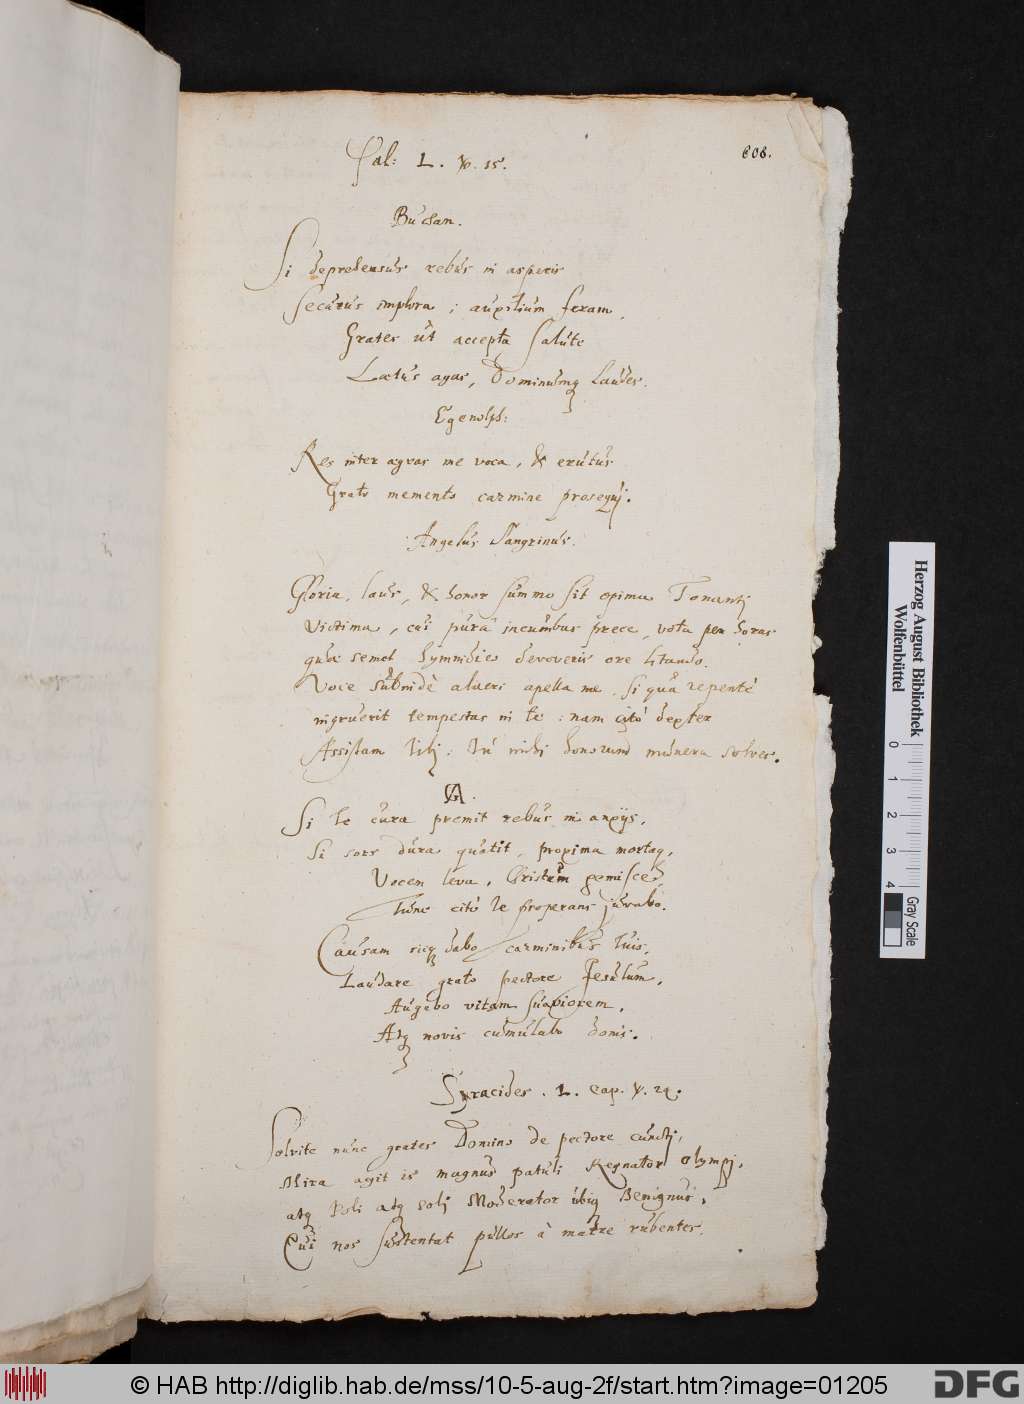 Psal: L. ℣. 15.
608.
Buchan.
Si deprehensus rebus in asperis
Securus implora; auxilium feram,
Grates ut accepta salute
Lætus agas, Dominumq laudes.
Egenolph:
Res inter agras me voca, & erutus
Grato memento carmine prosequj.
Angelus Sangrinus.
Gloria, laus, & honor summo sit opima Tonantj
Victima, cui purâ incumbas prece, vota per horas
quæ semel devoveris ore litando.
Voce subinde alacri apella me, si qua repentè
ingruerit tempestas in te: nam citò dexter
Assistam tibj: tu mihi honorum munera solves.
GA.
Si te cura premit rebus in anxijs,
Si sors dura quatit, proxima mortaq,
Vocem leva, Christum gemisce,
Tunc citò te properans juvabo.
Causam sicq dabo carminibus tuis,
Laudare grato pectore Jesulum,
Augebo vitam suaviorem,
Atq novis cumulabo donis.
Syracides. L. Cap. ℣. 24.
Solvite nunc grates Domino de pectore cunctj,
Mira agit is magnus patuli Regnator olympj,
atq Poli atq solj Moderator ubiq Benignus,
Cui nos sustentat pullos à matre rubentes.
Herzog August Bibliothek
Wolfenbüttel
0 1 2 3 4
Gray Scale
© HAB http://diglib.hab.de/mss/10-5-aug-2f/start.htm?image=01205
DFG